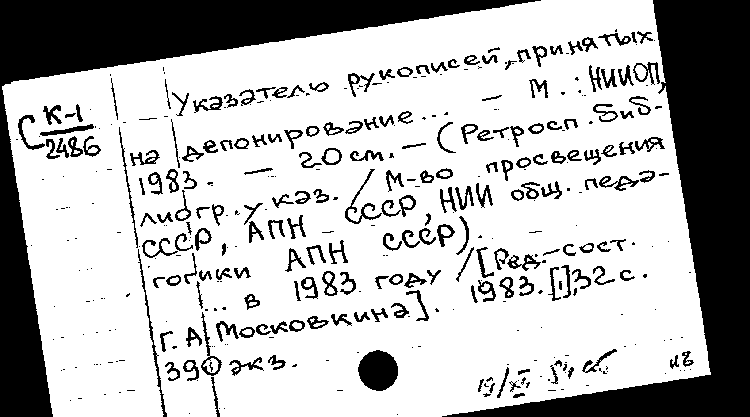 С К-1
2486
Указатель рукописей, принятых
на депонирование... — М.: НИИОП,
1983. — 20 см. — (Ретросп. биб-
лиогр. указ. / М-во просвещения
СССР, АПН СССР, НИИ общ. педа-
гогики АПН СССР).
... в 1983 году / [Ред.-сост.
Г. А. Московкина]. 1983. [1], 32 с.
390 экз.